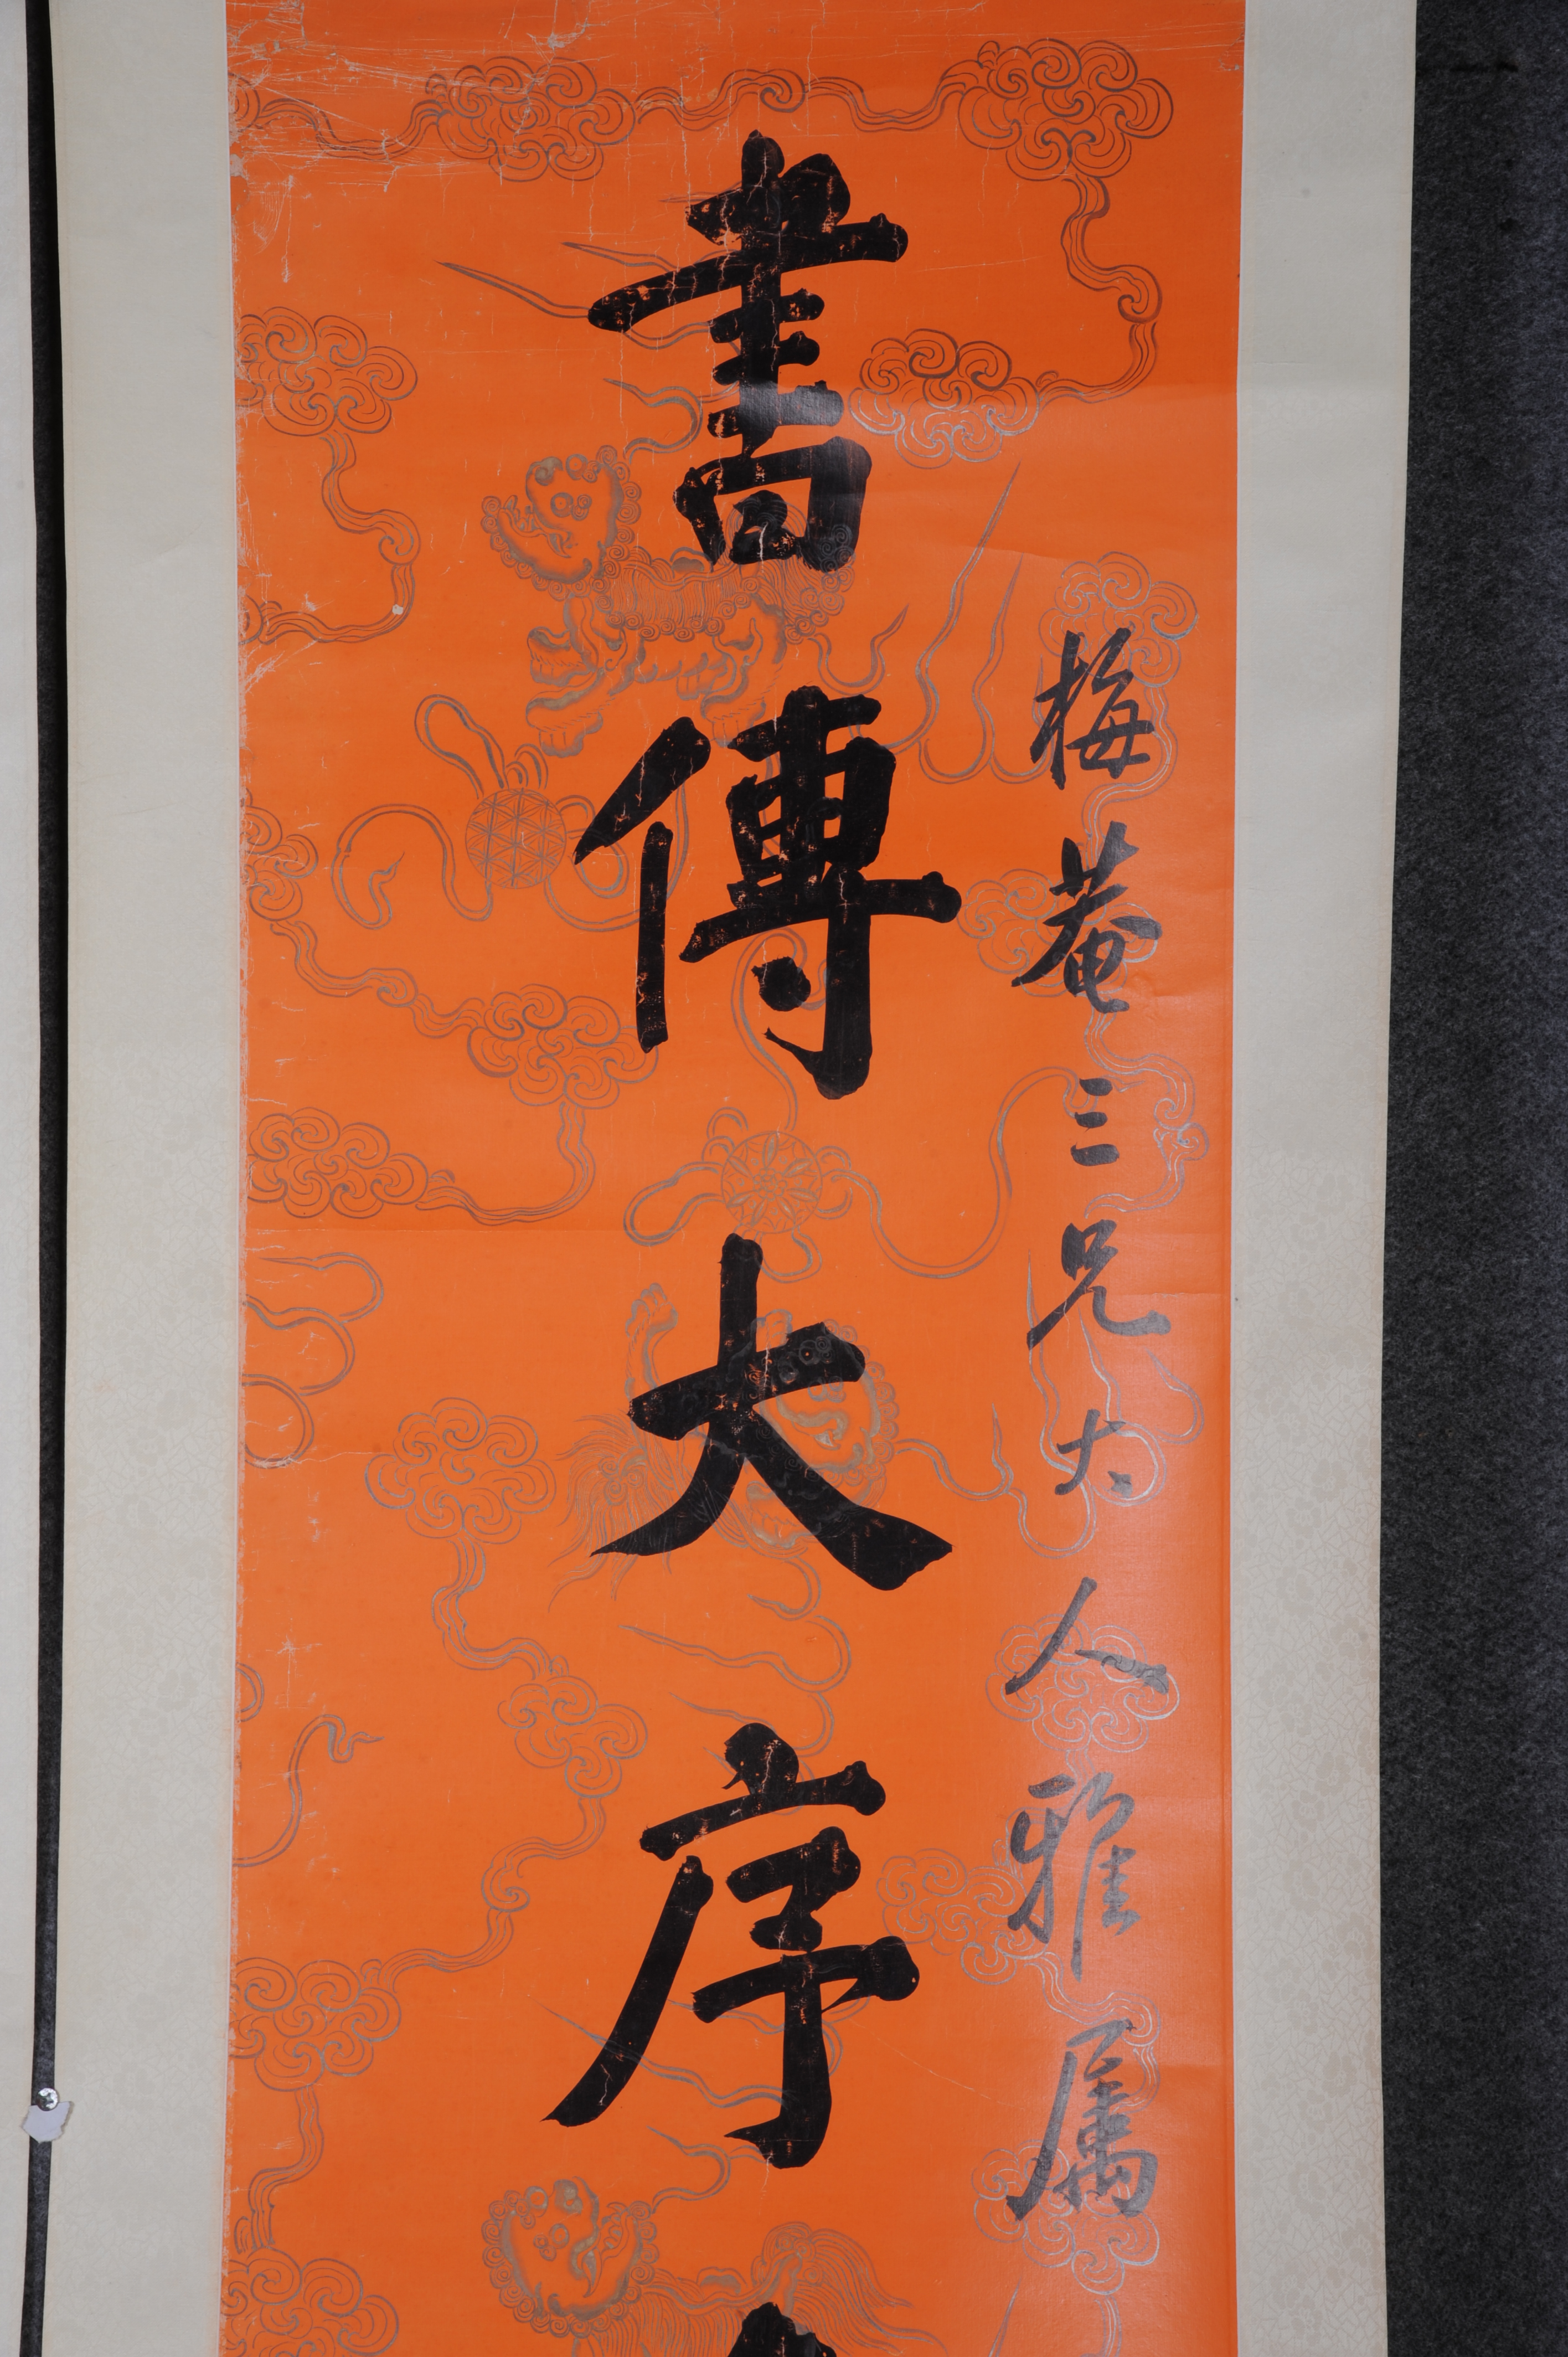 梅菴三兄大人雅属
書傳大序